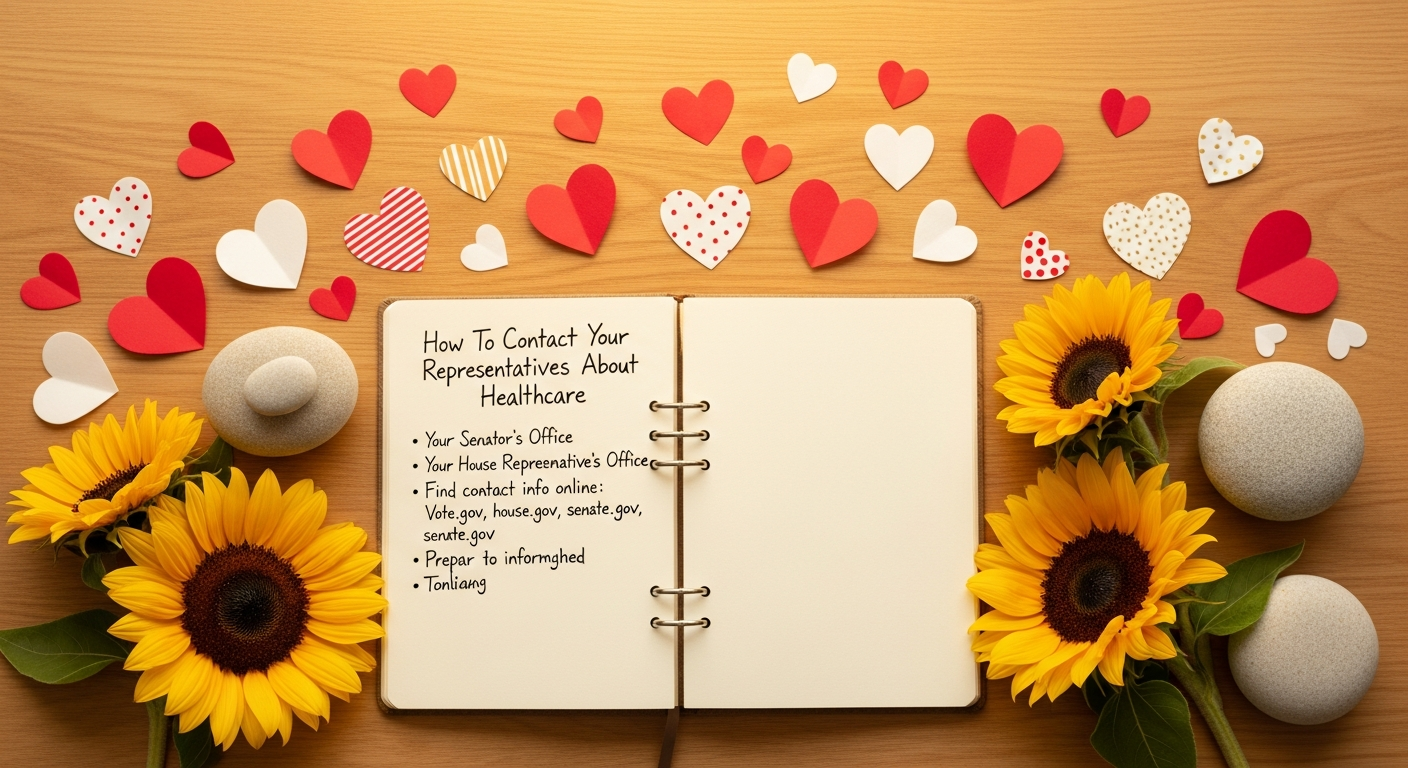 How To Contact Your
Representatives About
Healthcare
• Your Senator's Office
• Your House Repreenative's Office
• Find contact info online:
Vote.gov, house.gov, senate.gov,
senate.gov
• Prepar to informghed